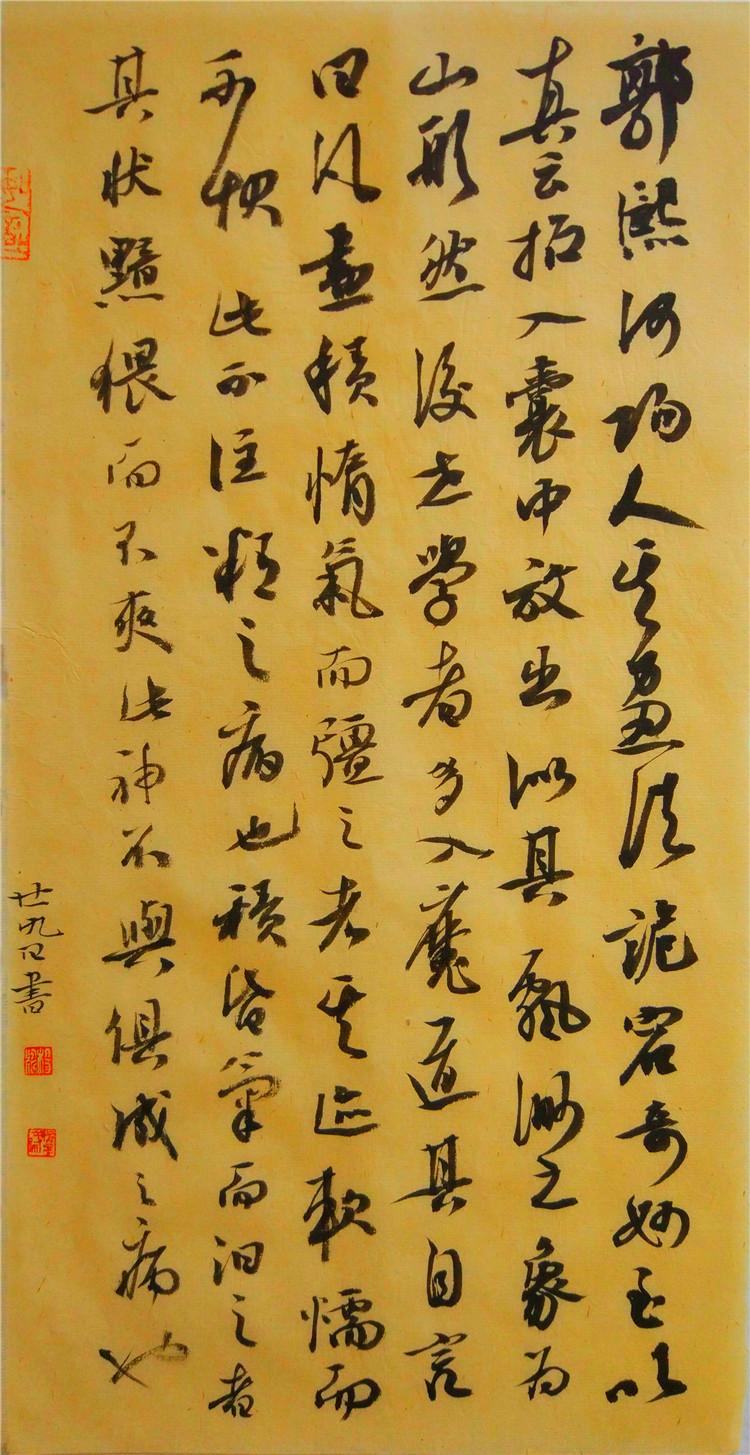 郭熙河陽人其畫法詭宕奇妙至以
真云招入囊中放出以具飄渺之象为
山形然後世學者多入魔道其自言
曰凡畫積惰氣而彊之者其迹軟懦而
不快此不注精之病也積昏氣而汩之者
其狀黯猥而不爽此神不與俱成之病也
廿九日書